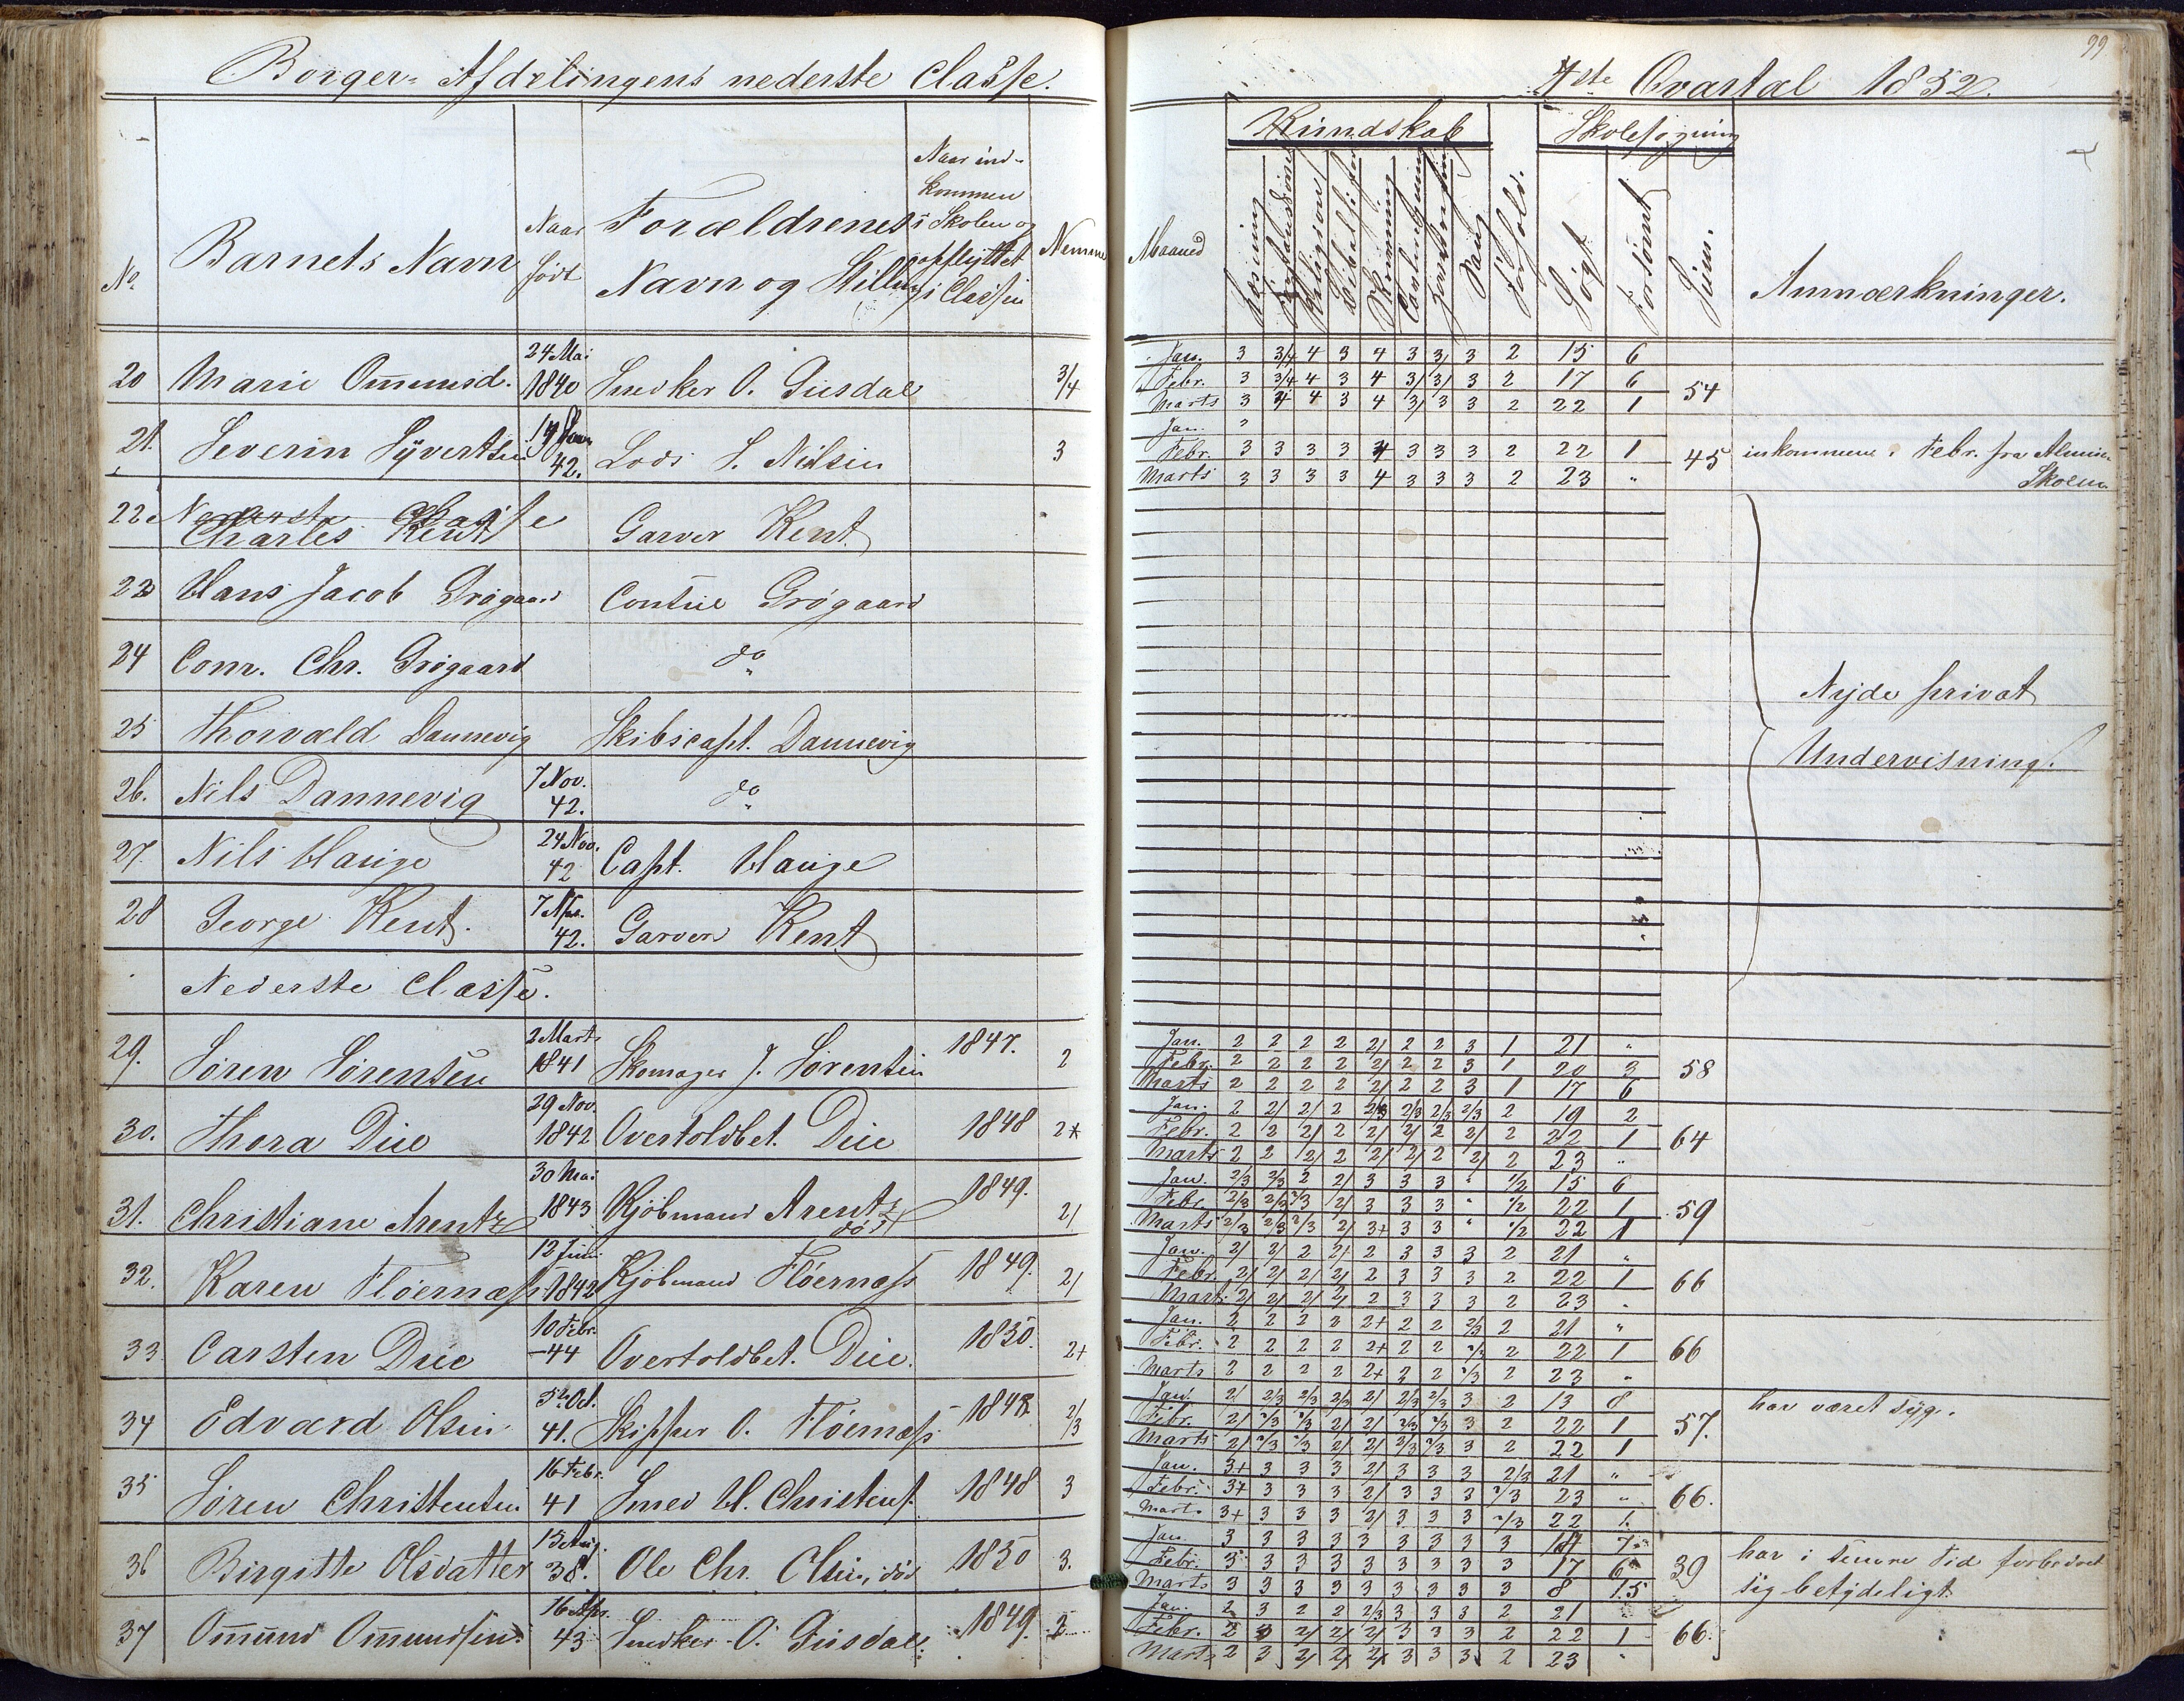 Borger-Afdelingens nederste Classe.
No. Barnets Navn Naar født Forældrenes Navn og Stilling Naar indkommen i Skolen og opflyttet i Classen Nemme
20 Marie Omunsd. 24 Mai 1840 Snedker O. Gusdal 3/4
21. Severin Syvertsen 42. Lods S. Nilsen 3
22 Nederste Classe
Charles Kent Garver Kent
23 Hans Jacob Grøgaard Grøgaard
24 Conr. Chr. Grøgaard do
25 Thorvald Dannevig Skibscapt. Dannevig
26. Nils Dannevig 7 Nov. 42. do
27. Nils Hauge 24 Nov. 42 Capt. Hauge
28 George Kent. 42. Garver Kent
Nederste Classe.
29. Søren Sørensen 2 Marts 1841 Skomager J. Sørensen 1847. 2
30. Thora Due 29 Nov. 1842 Overtoldbet. Due 1848 2+
31. Christiane Arentz 30 Mai 1843 Kjøbmand Arentz død 1849. 2/
32. Karen Fløernæss 12 Juni 1842 Kjøbmand Fløernæss 1849. 2/
33 Carsten Due 10 Febr. -44 Overtoldbet. Due. 1850. 2+
34 Edvard Olsen 5te Oct. 41. Skipper O. Fløernæss 1848. 2/3
35 Søren Christensen 16 Febr. 41 Smed H. Christens. 1848 3
36 Birgitte Olsdatter 13 Aug. 38. Ole Chr. Olsen, død 1850 3.
37 Omund Omundsen 16 Apr. 43 Snedker O. Gusdal. 1849. 2
99
1ste Qvartal 1852.
Kundskab Skolesøgning
Maaned Læsning Religion Skrivning Sang Forhold. Søgt Forsømt Sum. Anmærkninger.
Jan. 3 3/4 4 3 4 3 3/ 3 2 15 6
Febr. 3 3/4 4 3 4 3/ 3/ 3 2 17 6 54
Marts 3 4 4 3 4 3/ 3 3 2 22 1
Jan. "
Febr. 3 3 3 3 4 3 3 3 2 22 1 45 inkommen i Febr. fra Almue
Marts 3 3 3 3 4 3 3 3 2 23 " Skolen
Nyde privat
Undervisning.
Jan. 2 2 2 2 2/ 2 2 3 1 21 "
Febr. 2 2 2 2 2/ 2 2 3 1 20 3 58
Marts 2 2 2 2 2/ 2 2 3 1 17 6
Jan. 2 2/ 2/ 2 2/3 2/3 2/3 2/3 2 19 2
Febr. 2 2 2/ 2 2/ 2/ 2 2/ 2 22 1 64
Marts 2 2 2/ 2 2/ 2/ 2 2/ 2 23 "
Jan. 2/3 2/3 2 2/ 3 3 3 " 1/2 15 6
Febr. 2/3 2/3 2/3 2/ 3 3 3 " 1/2 22 1 59
Marts 2/3 2/3 2/3 2/ 3+ 3 3 " 1/2 22 1
Jan. 2/ 2/ 2 2+ 2 3 3 3 2 21 "
Febr. 2/ 2/ 2/ 2/ 2 3 3 3 2 22 1 66
Marts 2/ 2/ 2/ 2/ 2 3 3 3 2 23 "
Jan. 2 2 2 2 2+ 2 2 2/3 2 21 "
Febr. 2 2 2 2 2+ 2 2 2/3 2 22 1 66
Marts 2 2 2 2 2+ 2 2 2/3 2 23 "
Jan. 2/ 2/3 2/3 2/3 2/ 2/3 2/3 3 2 13 8 har været syg.
Febr. 2/ 2/3 2/3 2/ 2/ 2/3 2/3 3 2 22 1 57.
Marts 2/ 2/3 2/3 2/ 2/ 2/3 2/3 3 2 22 1
Jan. 3+ 3 3 3 2/ 3 3 3 2/3 21 "
Febr. 3+ 3 3 3 2/ 3 3 3 2/3 23 " 66.
Marts 3+ 3 3 3 2/ 3 3 3 2/3 22 1.
Jan. 3 3 3 3 3 3 3 3 3 14 7
Febr. 3 3 3 3 3 3 3 3 3 17 6 39 har i senere Tid forbedret
Marts 3 3 3 3 3 3 3 3 3 8 15 sig betydeligt
Jan. 2 3 2 2 2/3 3 3 3 2 21
Febr. 2 3 2/ 2/ 2/ 3 3 3 2 22 1 66.
Marts 2 3 2/ 2/ 2/ 3 3 3 2 23 "